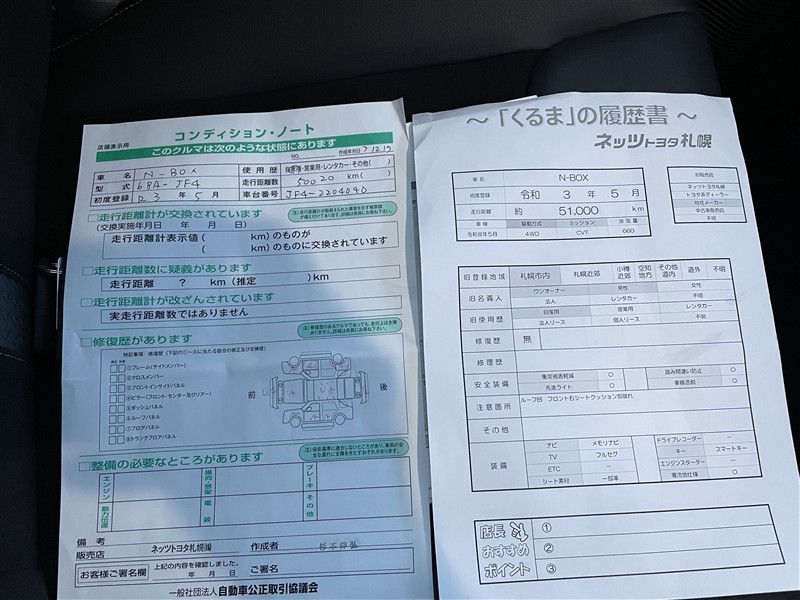 店頭表示用
コンディション・ノート
このクルマは次のような状態にあります
作成年月日
NO.
車 名 N-BOX
型 式 6BA-JF4
初度登録 R 3 年 5 月
使 用 歴 自家用・営業用・レンタカー・その他( )
走行距離数 50020 km( )
車台番号 JF4-2204040
走行距離計が交換されています
(交換実施年月日 年 月 日)
走行距離計表示値( km)のものが
( km)のものに交換されています
走行距離数に疑義があります
走行距離 ? km(推定 )km
走行距離計が改ざんされています
実走行距離数ではありません
修復歴があります
特記事項 修復歴(下記の①~⑧に当たる部分の修正及び交換歴)
①フレーム(サイドメンバー)
②クロスメンバー
③フロントインサイドパネル
④ピラー(フロント・センター及びリアー)
⑤ダッシュパネル
⑥ルーフパネル
⑦フロアパネル
⑧トランクフロアパネル
前 後
整備の必要なところがあります
エンジン
動力伝達
操向・懸架
電装
ブレーキ
その他
備 考
販売店 ネッツトヨタ札幌㈱ 作成者
お客様ご署名欄 上記の内容を確認しました。
年 月 日 ご署名
一般社団法人 自動車公正取引協議会
~「くるま」の履歴書~
ネッツトヨタ札幌
車 名 N-BOX
初度登録 令和 3 年 5 月
走行距離 約 51,000 km
車 検 駆動方式 ミッション 排 気 量
令和8年5月 4WD CVT 660
旧販売店
ネッツトヨタ札幌
トヨタ系ディーラー
他社メーカー
中古車販売店
不明
旧登録地域 札幌市内 札幌近郊 小樽近郊 空知地方 その他道内 道外 不明
旧名義人 ワンオーナー 男性 女性
法人 レンタカー 不明
旧使用歴 自家用 営業用 レンタカー
法人リース 個人リース 不明
修復歴 無
修理歴
安全装備 衝突被害軽減 ○ 踏み間違い防止 ○
先進ライト ○ 車線逸脱 ○
注意箇所 ルーフ凹 フロント右シートクッション部破れ
その他
装備
ナビ メモリナビ ドライブレコーダー -
TV フルセグ キー スマートキー
ETC - エンジンスターター -
シート素材 一部革 寒冷地仕様 ○
店長
おすすめ
ポイント
①
②
③